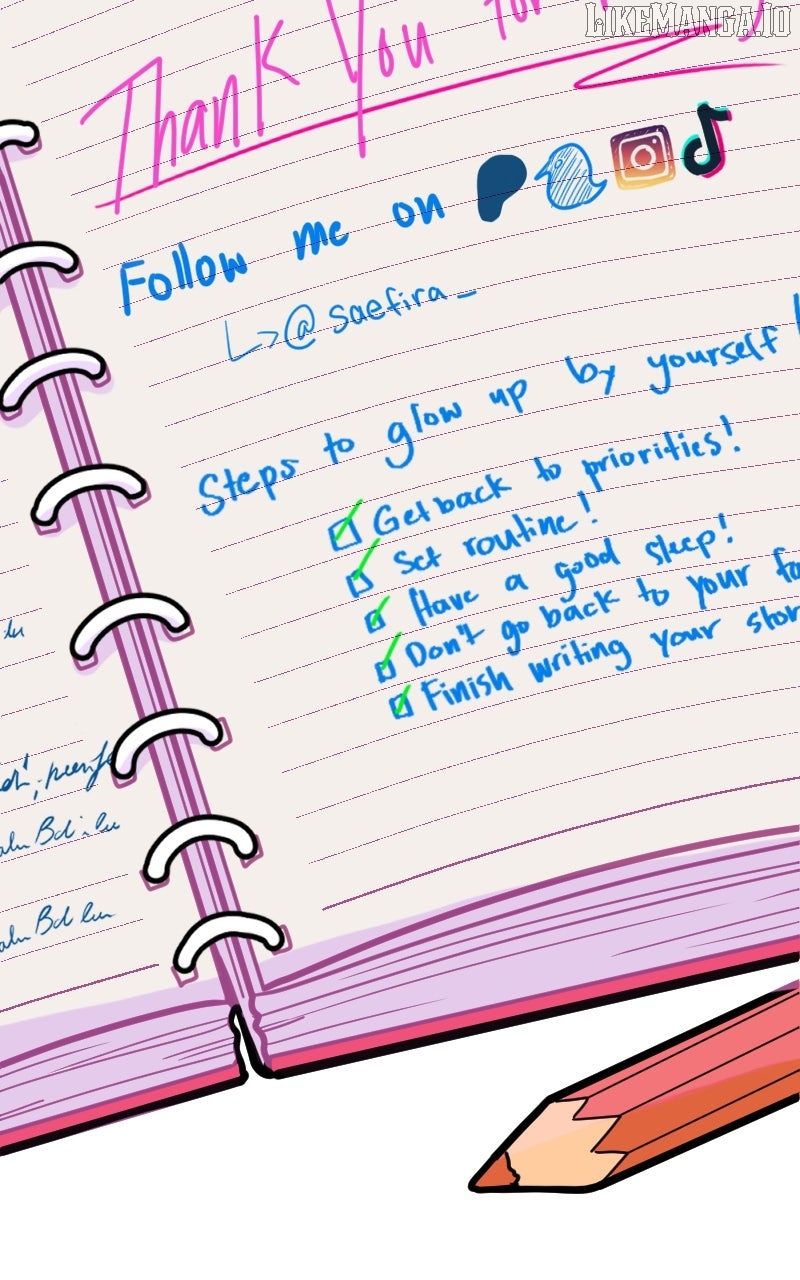 LIKEMANGA.IO
Thank You for
Follow me on
@saefira_
Steps to glow up by yourself
Get back to priorities!
Set routine!
Have a good sleep!
Don't go back to your
Finish writing your